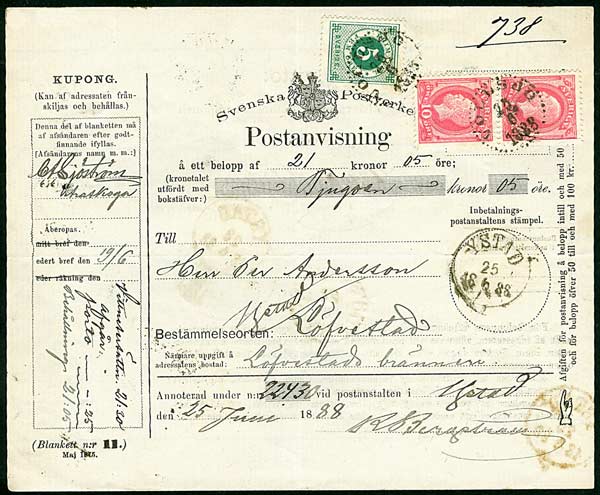 738
KUPONG.
(Kan af adressaten från-
skiljas och behållas.)
Denna del af blanketten må
af afsändaren efter godt-
finnande ifyllas.
(Afsändarens namn m. m.:)
Sjöström
Åberopas.
mitt bref den
edert bref den 19/6
eller räkning den
21.30
afgår.
Porto — „ — :25
Behållning 21:05
(Blankett n:r 11.)
Maj 1885.
SVERIGE
5
10
SVERIGE
10
1888
Svenska Postverket
Postanvisning
å ett belopp af 21 kronor 05 öre;
(kronetalet
utfördt med
bokstäfver:) Tjugoen kronor 05 öre.
Inbetalnings-
postanstaltens stämpel.
YSTAD
25
6
1888
Till
Herr Per Andersson
Ystad
Bestämmelseorten: Löfvestad
Närmare uppgift å
adressatens bostad: Löfvestads bränneri.
Annoterad under n:r 22430 vid postanstalten i Ystad
den 25 Juni 1888
Bergström
Afgiften för postanvisning å belopp intill och med 50
och för belopp öfver 50 till och med 100 kr.